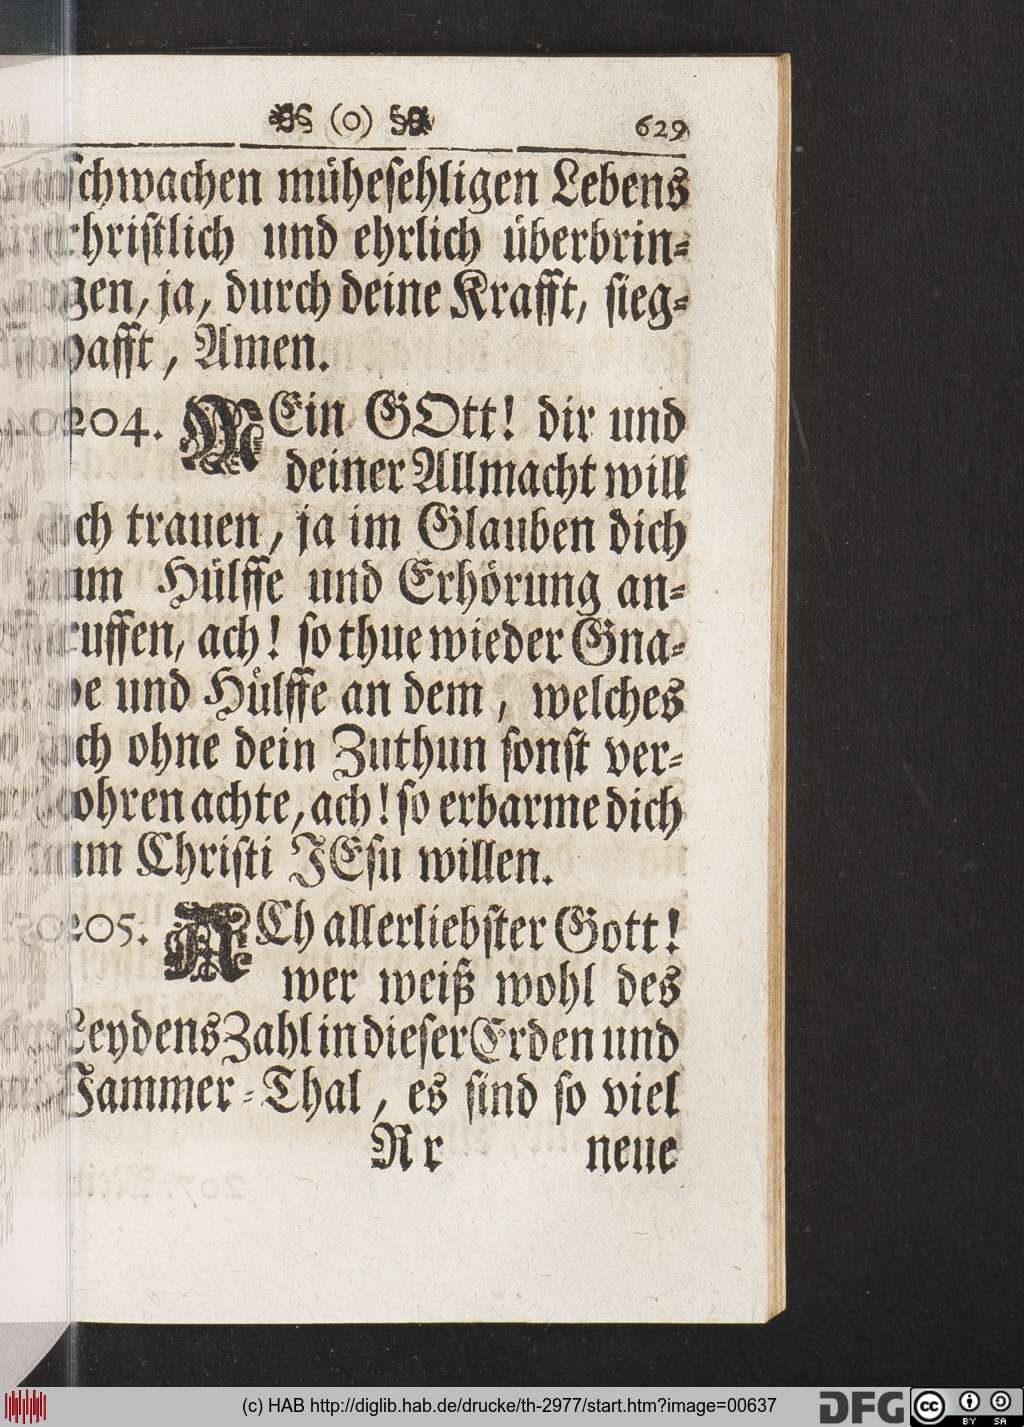 (o) 629
schwachen mühesehligen Lebens
christlich und ehrlich überbrin-
gen, ja, durch deine Krafft, sieg-
hafft, Amen.
204. MEin GOtt! dir und
deiner Allmacht will
ich trauen, ja im Glauben dich
um Hülffe und Erhörung an-
ruffen, ach! so thue wieder Gna-
de und Hülffe an dem, welches
ich ohne dein Zuthun sonst ver-
lohren achte, ach! so erbarme dich
um Christi JEsu willen.
205. ACh allerliebster Gott!
wer weiß wohl des
Leydens Zahl in dieser Erden und
Jammer-Thal, es sind so viel
Rr neue
(c) HAB http://diglib.hab.de/drucke/th-2977/start.htm?image=00637 DFG cc BY SA